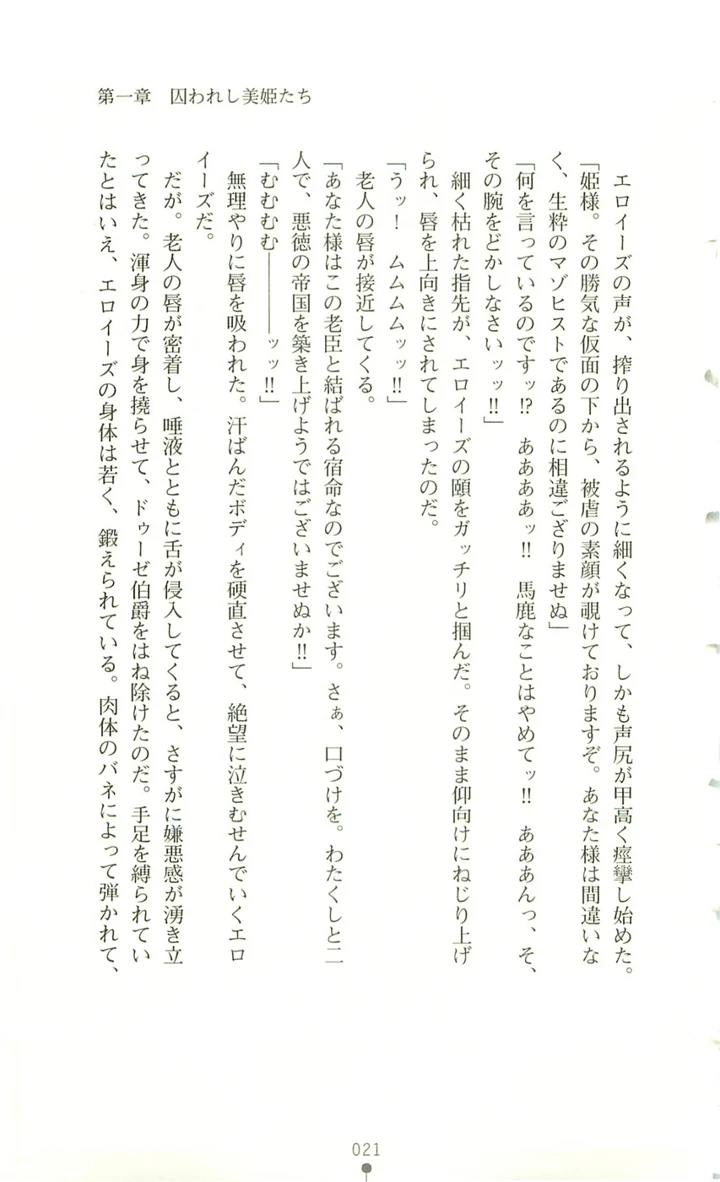 第一章　囚われし美姫たち
　エロイーズの声が、搾り出されるように細くなって、しかも声尻が甲高く痙攣し始めた。
「姫様。その勝気な仮面の下から、被虐の素顔が覗けておりますぞ。あなた様は間違いな
く、生粋のマゾヒストであるのに相違ござりませぬ」
「何を言っているのですッ!?　ああああッ!!　馬鹿なことはやめてッ!!　あああんっ、そ、
その腕をどかしなさいッッ!!」
　細く枯れた指先が、エロイーズの頤をガッチリと掴んだ。そのまま仰向けにねじり上げ
られ、唇を上向きにされてしまったのだ。
「うッ！　ムムムムッッ!!」
　老人の唇が接近してくる。
「あなた様はこの老臣と結ばれる宿命なのでございます。さぁ、口づけを。わたくしと二
人で、悪徳の帝国を築き上げようではございませぬか!!」
「むむむむ――――ッッ!!」
　無理やりに唇を吸われた。汗ばんだボディを硬直させて、絶望に泣きむせんでいくエロ
イーズだ。
　だが。老人の唇が密着し、唾液とともに舌が侵入してくると、さすがに嫌悪感が湧き立
ってきた。渾身の力で身を撓らせて、ドゥーゼ伯爵をはね除けたのだ。手足を縛られてい
たとはいえ、エロイーズの身体は若く、鍛えられている。肉体のバネによって弾かれて、
021